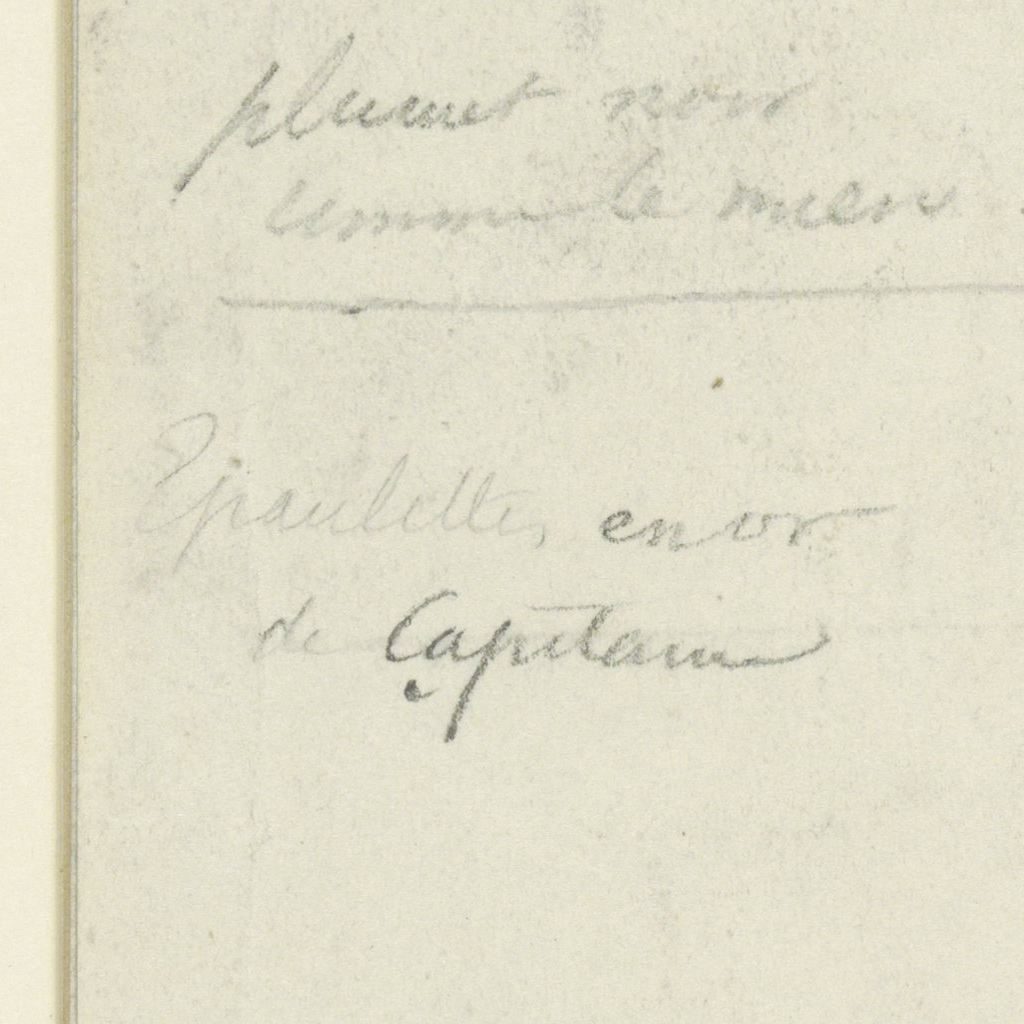 plumet noir
comme le mien
Epaulettes en or
de Capitaine